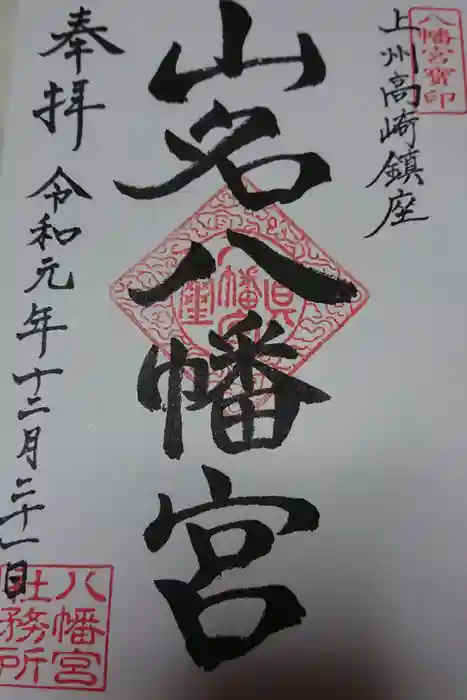 八幡宮寳印
上州高崎鎮座
山名八幡宮
奉拝
令和元年十二月二十一日
八幡宮
社務所